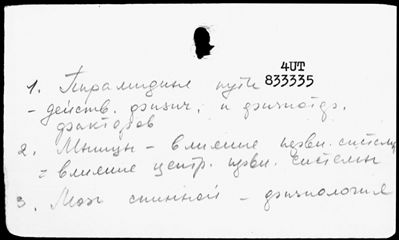 4UT
833335
1. Пирамидные пути
- действ. физич. и физиотер.
факторов
2. Мышцы - влияние нервн. системы
= влияние центр. нервн. системы
3. Мозг спинной - физиология